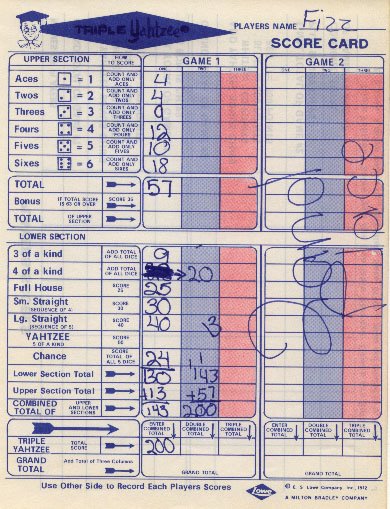 TRIPLE Yahtzee®
PLAYERS NAME Fizz
SCORE CARD
UPPER SECTION HOW TO SCORE GAME 1 GAME 2
ONE TWO THREE ONE TWO THREE
Aces = 1 COUNT AND ADD ONLY ACES 4
Twos = 2 COUNT AND ADD ONLY TWOS 4
Threes = 3 COUNT AND ADD ONLY THREES 9
Fours = 4 COUNT AND ADD ONLY FOURS 12
Fives = 5 COUNT AND ADD ONLY FIVES 10
Sixes = 6 COUNT AND ADD ONLY SIXES 18
TOTAL 57
Bonus IF TOTAL SCORE IS 63 OR OVER SCORE 35
TOTAL OF UPPER SECTION
LOWER SECTION
3 of a kind ADD TOTAL OF ALL DICE 9
4 of a kind ADD TOTAL OF ALL DICE 20
Full House SCORE 25 25
Sm. Straight (SEQUENCE OF 4) SCORE 30 30
Lg. Straight (SEQUENCE OF 5) SCORE 40 40 3
YAHTZEE 5 OF A KIND SCORE 50
Chance SCORE TOTAL OF ALL 5 DICE 24 11
Lower Section Total 130 143
Upper Section Total 113 +57
COMBINED TOTAL OF UPPER AND LOWER SECTIONS 143 200
ENTER COMBINED TOTAL DOUBLE COMBINED TOTAL TRIPLE COMBINED TOTAL ENTER COMBINED TOTAL DOUBLE COMBINED TOTAL TRIPLE COMBINED TOTAL
TRIPLE YAHTZEE TOTAL SCORE 200
GRAND TOTAL Add Total of Three Columns GRAND TOTAL GRAND TOTAL
Use Other Side to Record Each Players Scores
LOWE
© E. S. Lowe Company, Inc., 1972
A MILTON BRADLEY COMPANY